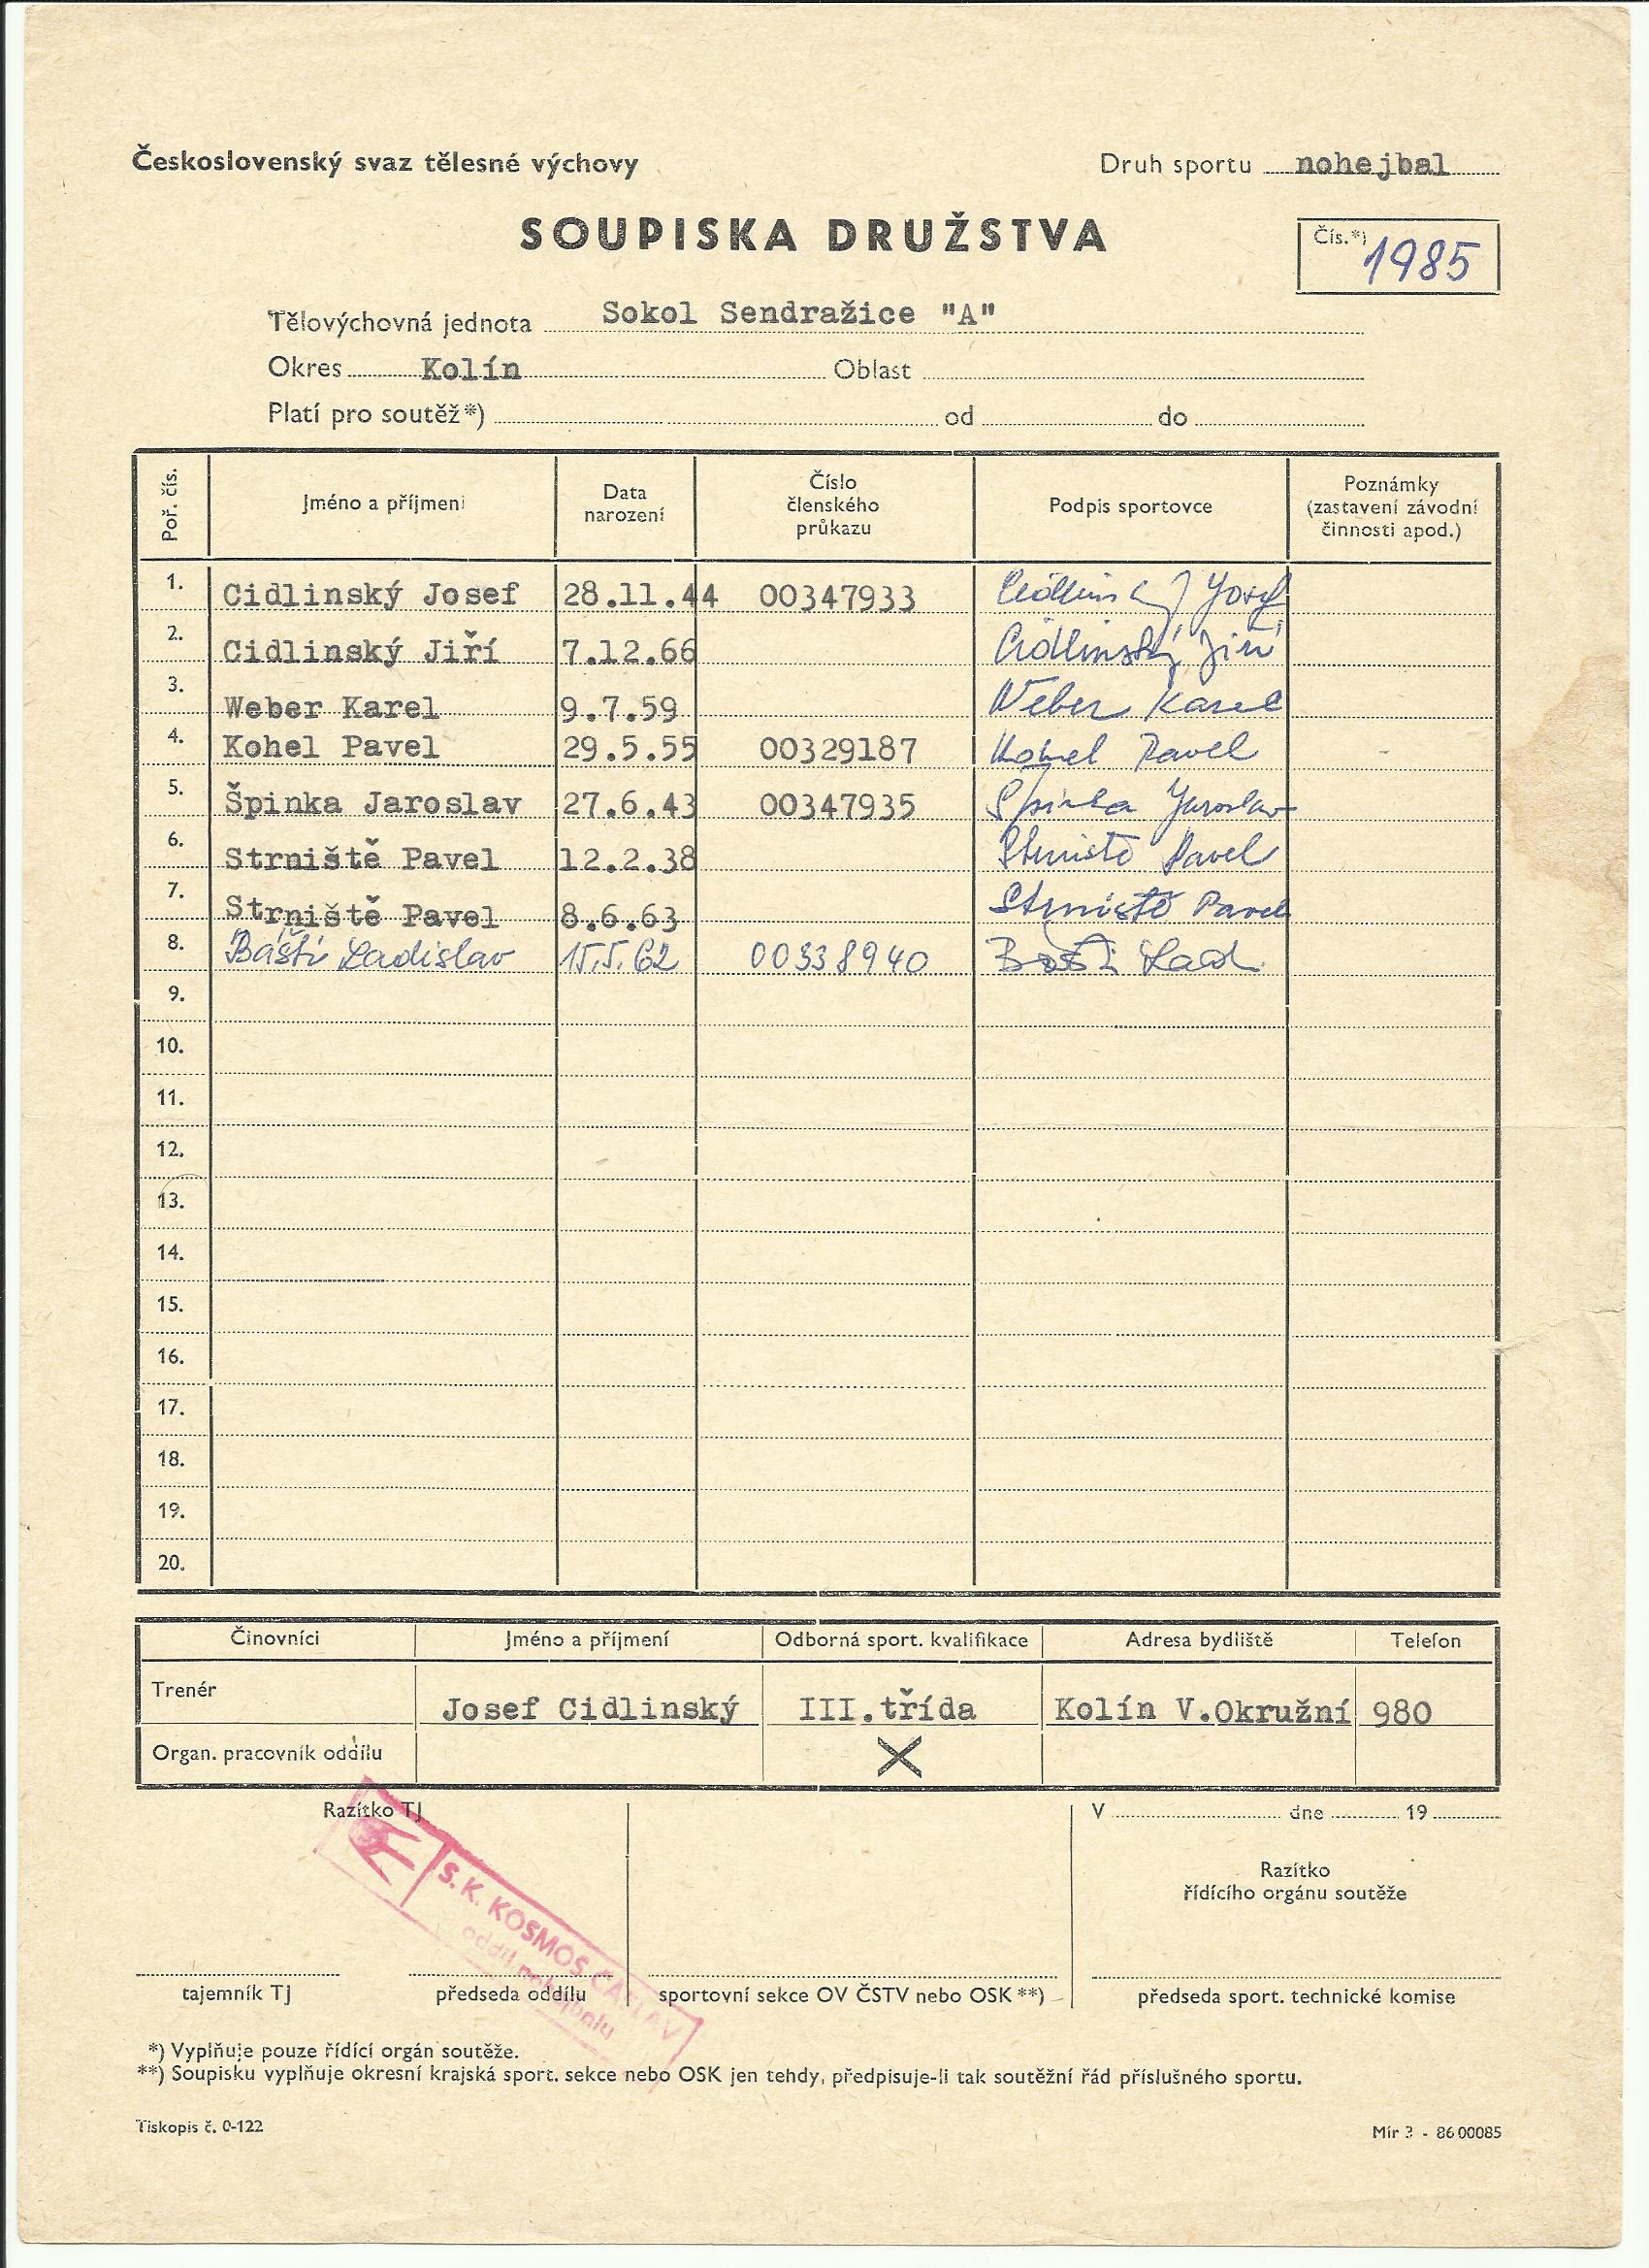 Československý svaz tělesné výchovy
Druh sportu nohejbal
SOUPISKA DRUŽSTVA
Čís.*) 1985
Tělovýchovná jednota Sokol Sendražice "A"
Okres Kolín Oblast
Platí pro soutěž*) od do
Poř. čís. Jméno a příjmení Data narození Číslo členského průkazu Podpis sportovce Poznámky (zastavení závodní činnosti apod.)
1. Cidlinský Josef 28.11.44 00347933 Cidlinský Josef
2. Cidlinský Jiří 7.12.66 Cidlinský Jiří
3. Weber Karel 9.7.59 Weber Karel
4. Kohel Pavel 29.5.55 00329187 Kohel Pavel
5. Špinka Jaroslav 27.6.43 00347935 Špinka Jaroslav
6. Strniště Pavel 12.2.38 Strniště Pavel
7. Strniště Pavel 8.6.63 Strniště Pavel
8. Bašti Ladislav 15.5.62 00338940 Bašti Lad.
9.
10.
11.
12.
13.
14.
15.
16.
17.
18.
19.
20.
Činovníci Jméno a příjmení Odborná sport. kvalifikace Adresa bydliště Telefon
Trenér Josef Cidlinský III.třída Kolín V.Okružní 980
Organ. pracovník oddílu X
Razítko TJ
V dne 19
S.K. KOSMOS ČÁSLAV
oddíl nohejbalu
Razítko
řídícího orgánu soutěže
tajemník TJ předseda oddílu sportovní sekce OV ČSTV nebo OSK **) předseda sport. technické komise
*) Vyplňuje pouze řídící orgán soutěže.
**) Soupisku vyplňuje okresní krajská sport. sekce nebo OSK jen tehdy, předpisuje-li tak soutěžní řád příslušného sportu.
Tiskopis č. 0-122
Mír 3 - 86 00085